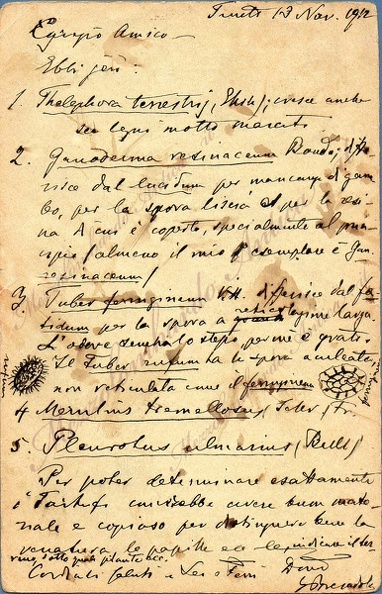 Trento 13 Nov. 1912
Egregio Amico —
Ebbi jeri:
1. Thelephora terrestris, Ehrh; cresce anche
su legni molto marciti
2. Ganoderma resinaceum Boud; diffe-
risce dal lucidum per mancanza di gam-
bo, per la spora liscia e per la resi-
na di cui è coperto, specialmente al prin-
cipio (almeno il mio esemplare è Gan.
resinaceum)
3. Tuber ferrugineum Vitt. differisce dal foe-
tidum per la spora a reticolazione larga
L'odore sembra lo stesso per me è grato
Il Tuber rufum ha le spore aculeate
non reticolate come il ferrugineum
rufum
4 Merulius tremellosus, Schr. Fr.
5. Pleurotus ulmarius, (Bull)
Per poter determinare esattamente
i Tartufi converrebbe avere buon mate-
riale e copioso per distinguere bene la
venatura, le papille ed indicare il ter-
reno, sotto quali piante ecc.
Cordiali saluti a Lei e
Devo
G Bresadola